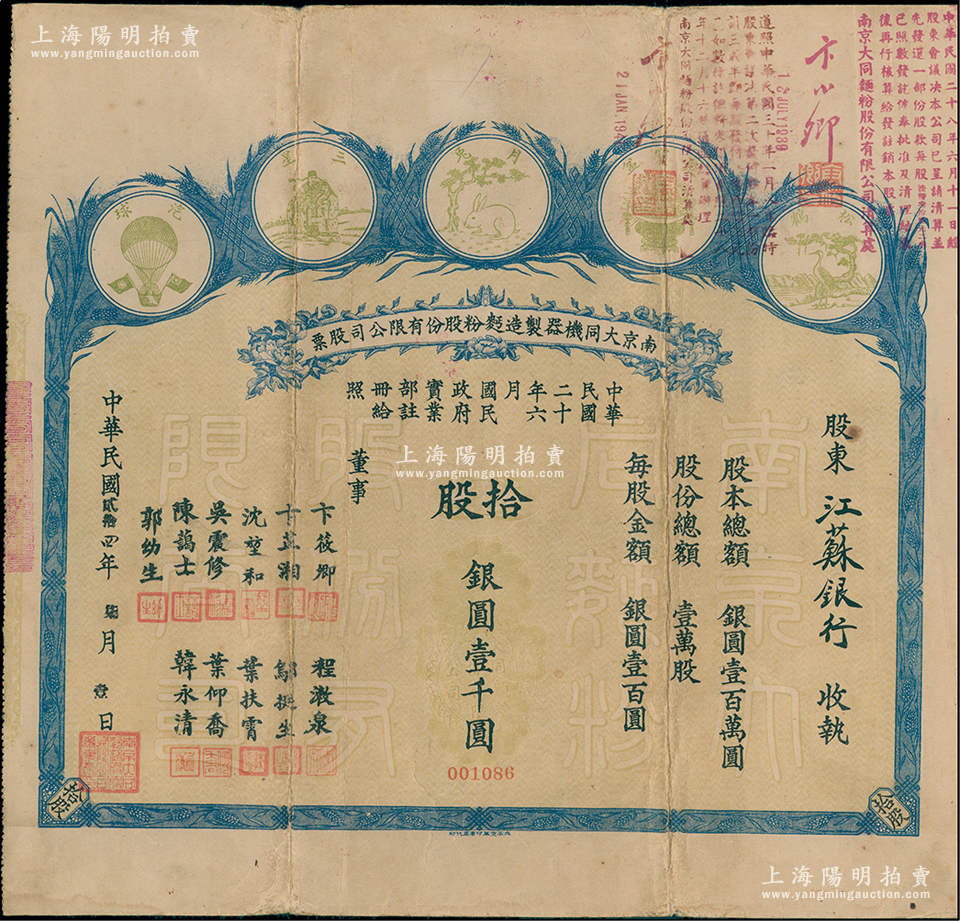 上海陽明拍賣
www.yangmingauction.com
上海陽明拍賣
www.yangmingauction.com
上海陽明拍賣
www.yangmingauction.com
中華民國二十八年六月十一日經
股東會議決本公司已呈請清算並
先發還一部份股款每股
已照數發訖
後再行核算給發註銷本股
南京大同麵粉股份有限公司清算處
卞小卿
12 JULY 1939
遵照中華民國三十年一月
年十二月十六
南京大同麵粉股份有限公司清算處
21 JAN. 19
松鶴
月兔
三星
汽球
南京大同機器製造麪粉股份有限公司股票
中華民國二十六年 月 國民政府實業部註冊給照
股東 江蘇銀行 收執
股本總額 銀圓壹百萬圓
股份總額 壹萬股
每股金額 銀圓壹百圓
拾股
銀圓壹千圓
001086
董事
卞筱卿
卞芷湘
沈堃和
吳震修
陳藹士
郭幼生
程漱泉
鄔挺生
葉扶霄
葉仰喬
韓永清
中華民國貳拾四年 柒月 壹日
拾股
拾股